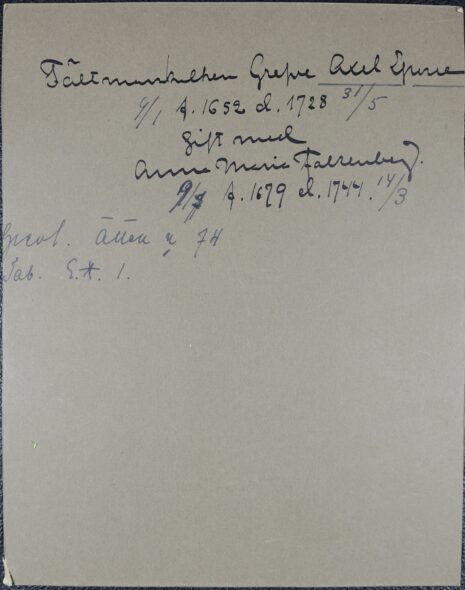 Fältmarskalken Greve Axel Sparre
9/1 f. 1652 d. 1728 31/5
Gift med
Anna Maria Falkenberg.
9/7 f. 1679 d. 1744. 14/3
Ätten n 74
Tab. 1.